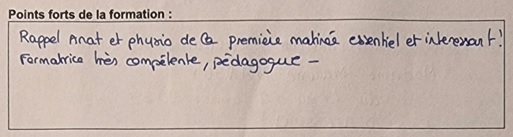 Points forts de la formation :
Rappel Anat et physio de la première matinée essentiel et interessant!
Formatrice très compétente, pédagogue -